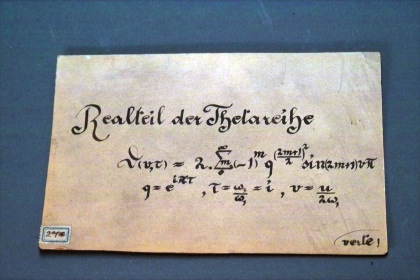 Realteil der Thetareihe
ϑ(v,τ) = 2.∑(-1)^m q^((2m+1)/2)^2 sin(2m+1)vπ
q = e^iπτ , τ = ω₁/ω = i , v = u/2ω
verte!